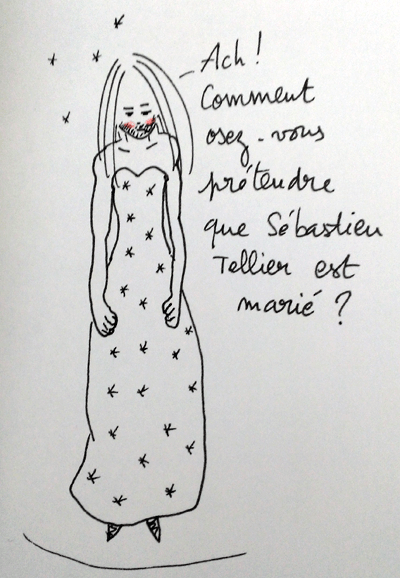 Ach !
Comment
osez-vous
prétendre
que Sébastien
Tellier est
marié ?